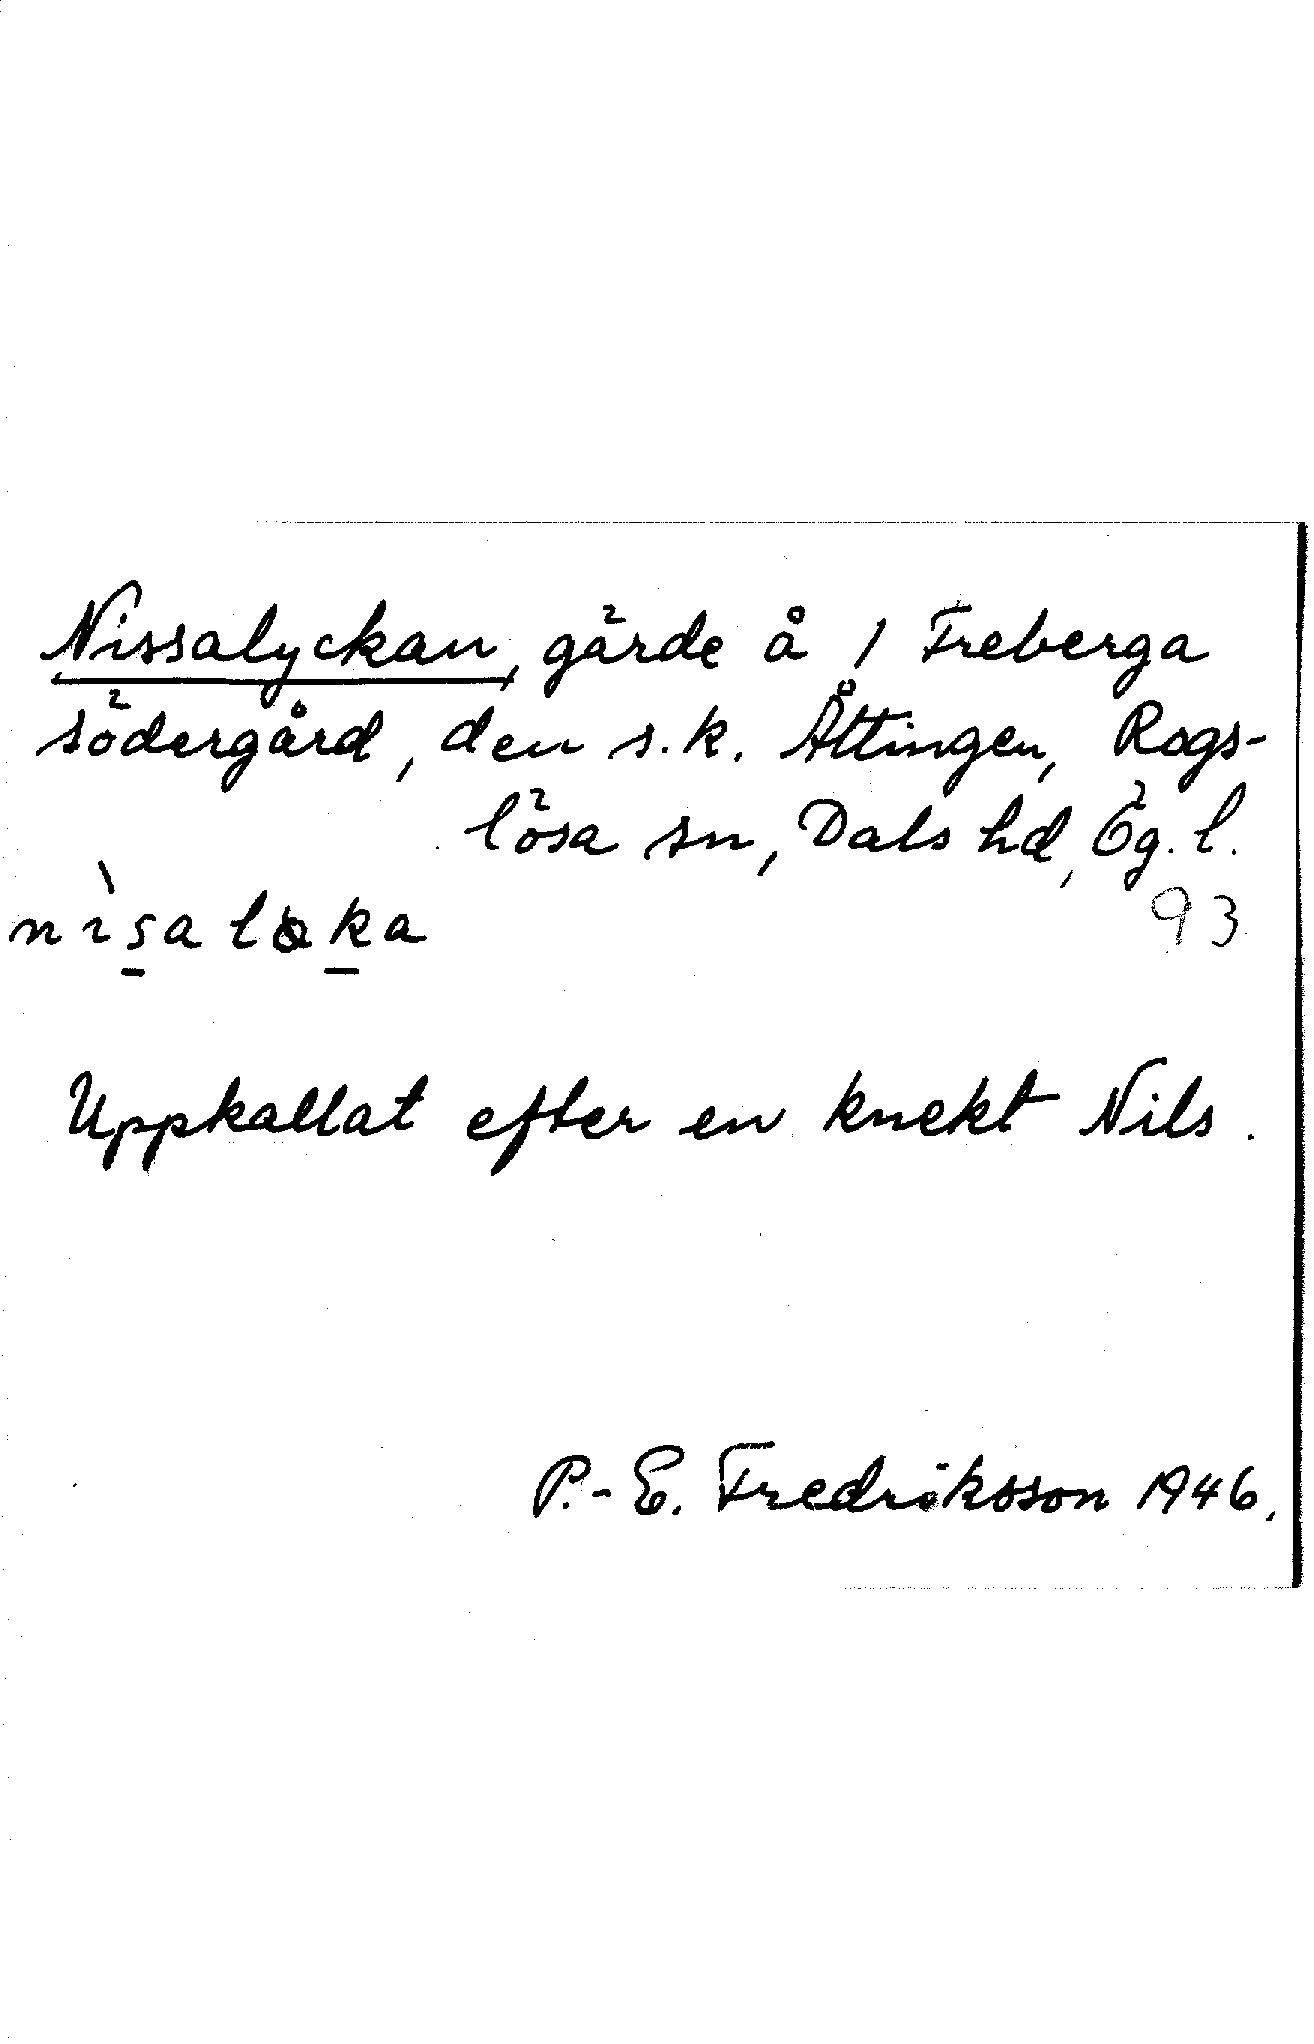 Nissalyckan, gärde å 1 Freberga
södergård, den s.k. Åttingen, Rogs-
lösa sn, Dals hd, Ög. l.
93
Uppkallat efter en knekt Nils.
P.-E. Fredriksson 1946.